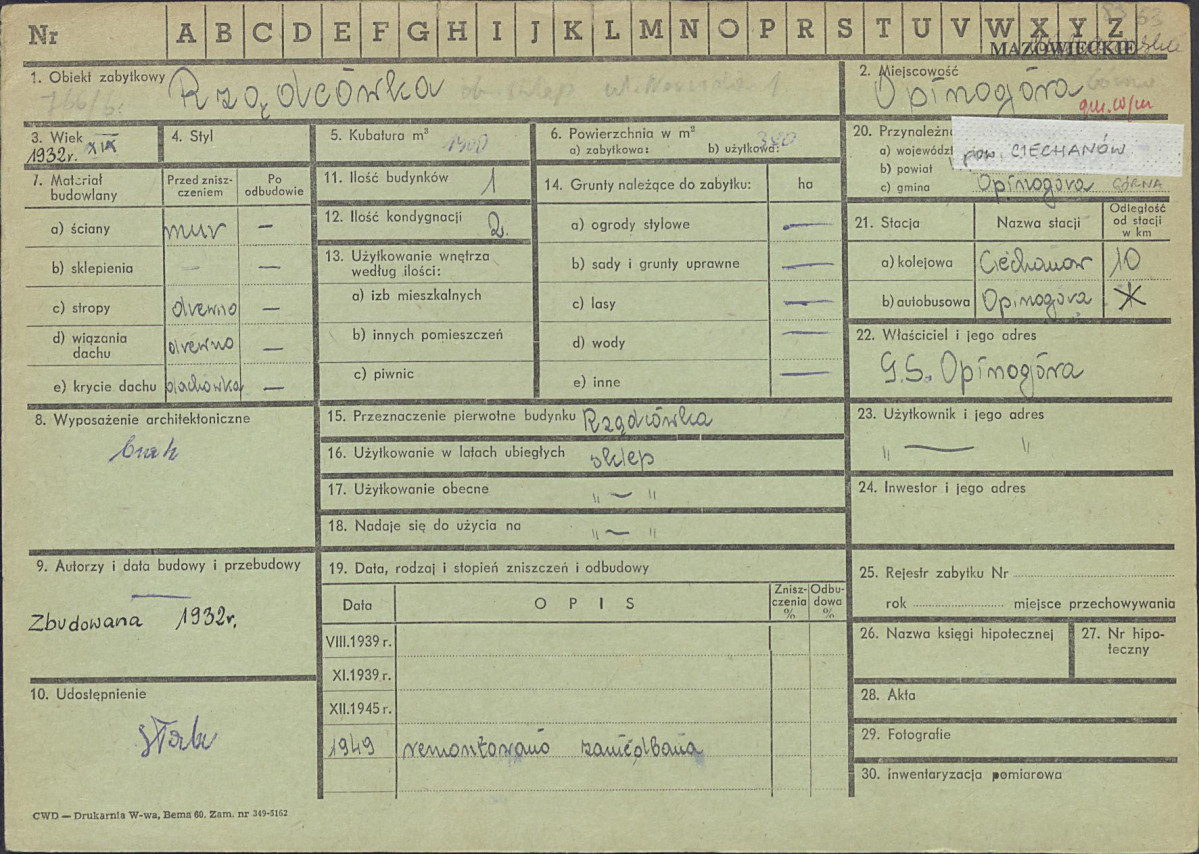 Nr A B C D E F G H I J K L M N O P R S T U V W X Y Z
MAZOWIECKIE
1. Obiekt zabytkowy Rządcówka
2. Miejscowość Opinogóra
gm. w/m
3. Wiek XIX
1932r.
4. Styl
5. Kubatura m³ 1900
6. Powierzchnia w m²
a) zabytkowa: b) użytkowa: 380
20. Przynależno
a) województ
b) powiat
c) gmina Opinogóra GÓRNA
pow. CIECHANÓW
7. Materiał budowlany
Przed zniszczeniem
Po odbudowie
a) ściany mur —
b) sklepienia — —
c) stropy drewno —
d) wiązania dachu drewno —
e) krycie dachu dachówka —
8. Wyposażenie architektoniczne
brak
9. Autorzy i data budowy i przebudowy
—
Zbudowana 1932r.
10. Udostępnienie
słabe
11. Ilość budynków 1
12. Ilość kondygnacji 2.
13. Użytkowanie wnętrza
według ilości:
a) izb mieszkalnych
b) innych pomieszczeń
c) piwnic
14. Grunty należące do zabytku: ha
a) ogrody stylowe —
b) sady i grunty uprawne —
c) lasy —
d) wody —
e) inne —
15. Przeznaczenie pierwotne budynku Rządcówka
16. Użytkowanie w latach ubiegłych sklep
17. Użytkowanie obecne " — "
18. Nadaje się do użycia na " — "
19. Data, rodzaj i stopień zniszczeń i odbudowy
Data
O P I S
Zniszczenia %
Odbudowa %
VIII.1939 r.
XI.1939 r.
XII.1945 r.
1949 remontowano zaniedbana
21. Stacja
Nazwa stacji
Odległość od stacji w km
a) kolejowa Ciechanow 10
b) autobusowa Opinogóra
22. Właściciel i jego adres
G.S. Opinogóra
23. Użytkownik i jego adres
" — "
24. Inwestor i jego adres
25. Rejestr zabytku Nr
rok miejsce przechowywania
26. Nazwa księgi hipotecznej
27. Nr hipoteczny
28. Akta
29. Fotografie
30. inwentaryzacja pomiarowa
CWD — Drukarnia W-wa, Bema 60. Zam. nr 349-5162